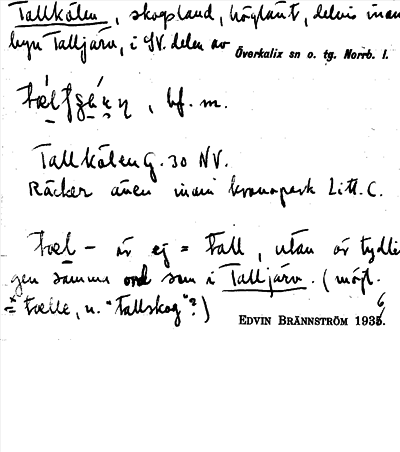 Tallkölen, skogsland, höglänt, delvis inom
byn Talljärv, i SV. delen av
Överkalix sn o. tg. Norrb. l.
, bf. m.
Tallkölen G. 30 NV.
Räcker även inom kronopark Litt. C.
tæl- är ej = tall, utan är tydli
gen samma ord som i Talljärv. (möjl.
= tælle, n. "tallskog"?)
EDVIN BRÄNNSTRÖM 1936.